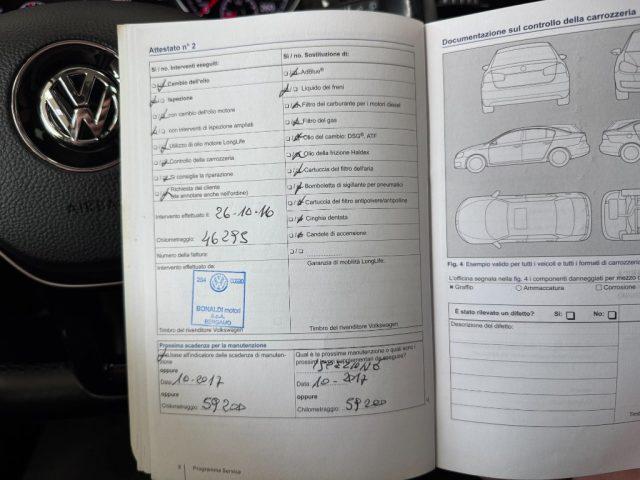 Attestato n° 2
Sì / no. Interventi eseguiti:
Cambio dell'olio
Ispezione
con cambio dell'olio motore
con interventi di ispezione ampliati
Utilizzo di olio motore LongLife
Controllo della carrozzeria
Si consiglia la riparazione
Richiesta del cliente
(da annotare anche nell'ordine)
Intervento effettuato il: 26-10-16
Chilometraggio: 46295
Numero della fattura:
Intervento effettuato da:
BONALDI motori
S.p.A.
BERGAMO
Timbro del rivenditore Volkswagen
Sì / no. Sostituzione di:
AdBlue®
Liquido dei freni
Filtro del carburante per i motori diesel
Filtro del gas
Olio del cambio: DSG®, ATF
Olio della frizione Haldex
Cartuccia del filtro dell'aria
Bomboletta di sigillante per pneumatici
Cartuccia del filtro antipolvere/antipolline
Cinghia dentata
Candele di accensione
Garanzia di mobilità LongLife:
Timbro del rivenditore Volkswagen
Prossima scadenza per la manutenzione
in base all'indicatore delle scadenze di manutenzione
oppure
Data: 10-2017
oppure
Chilometraggio: 59200
Qual è la prossima manutenzione o quali sono i
prossimi lavori supplementari da eseguire?
ISPEZIONE
Data: 10-2017
oppure
Chilometraggio: 59200
8 Programma Service
Documentazione sul controllo della carrozzeria
Fig. 4 Esempio valido per tutti i veicoli e tutti i formati di carrozzeria
L'officina segnala nella fig. 4 i componenti danneggiati per mezzo
Graffio Ammaccatura Corrosione
È stato rilevato un difetto? Sì: No:
Descrizione del difetto: